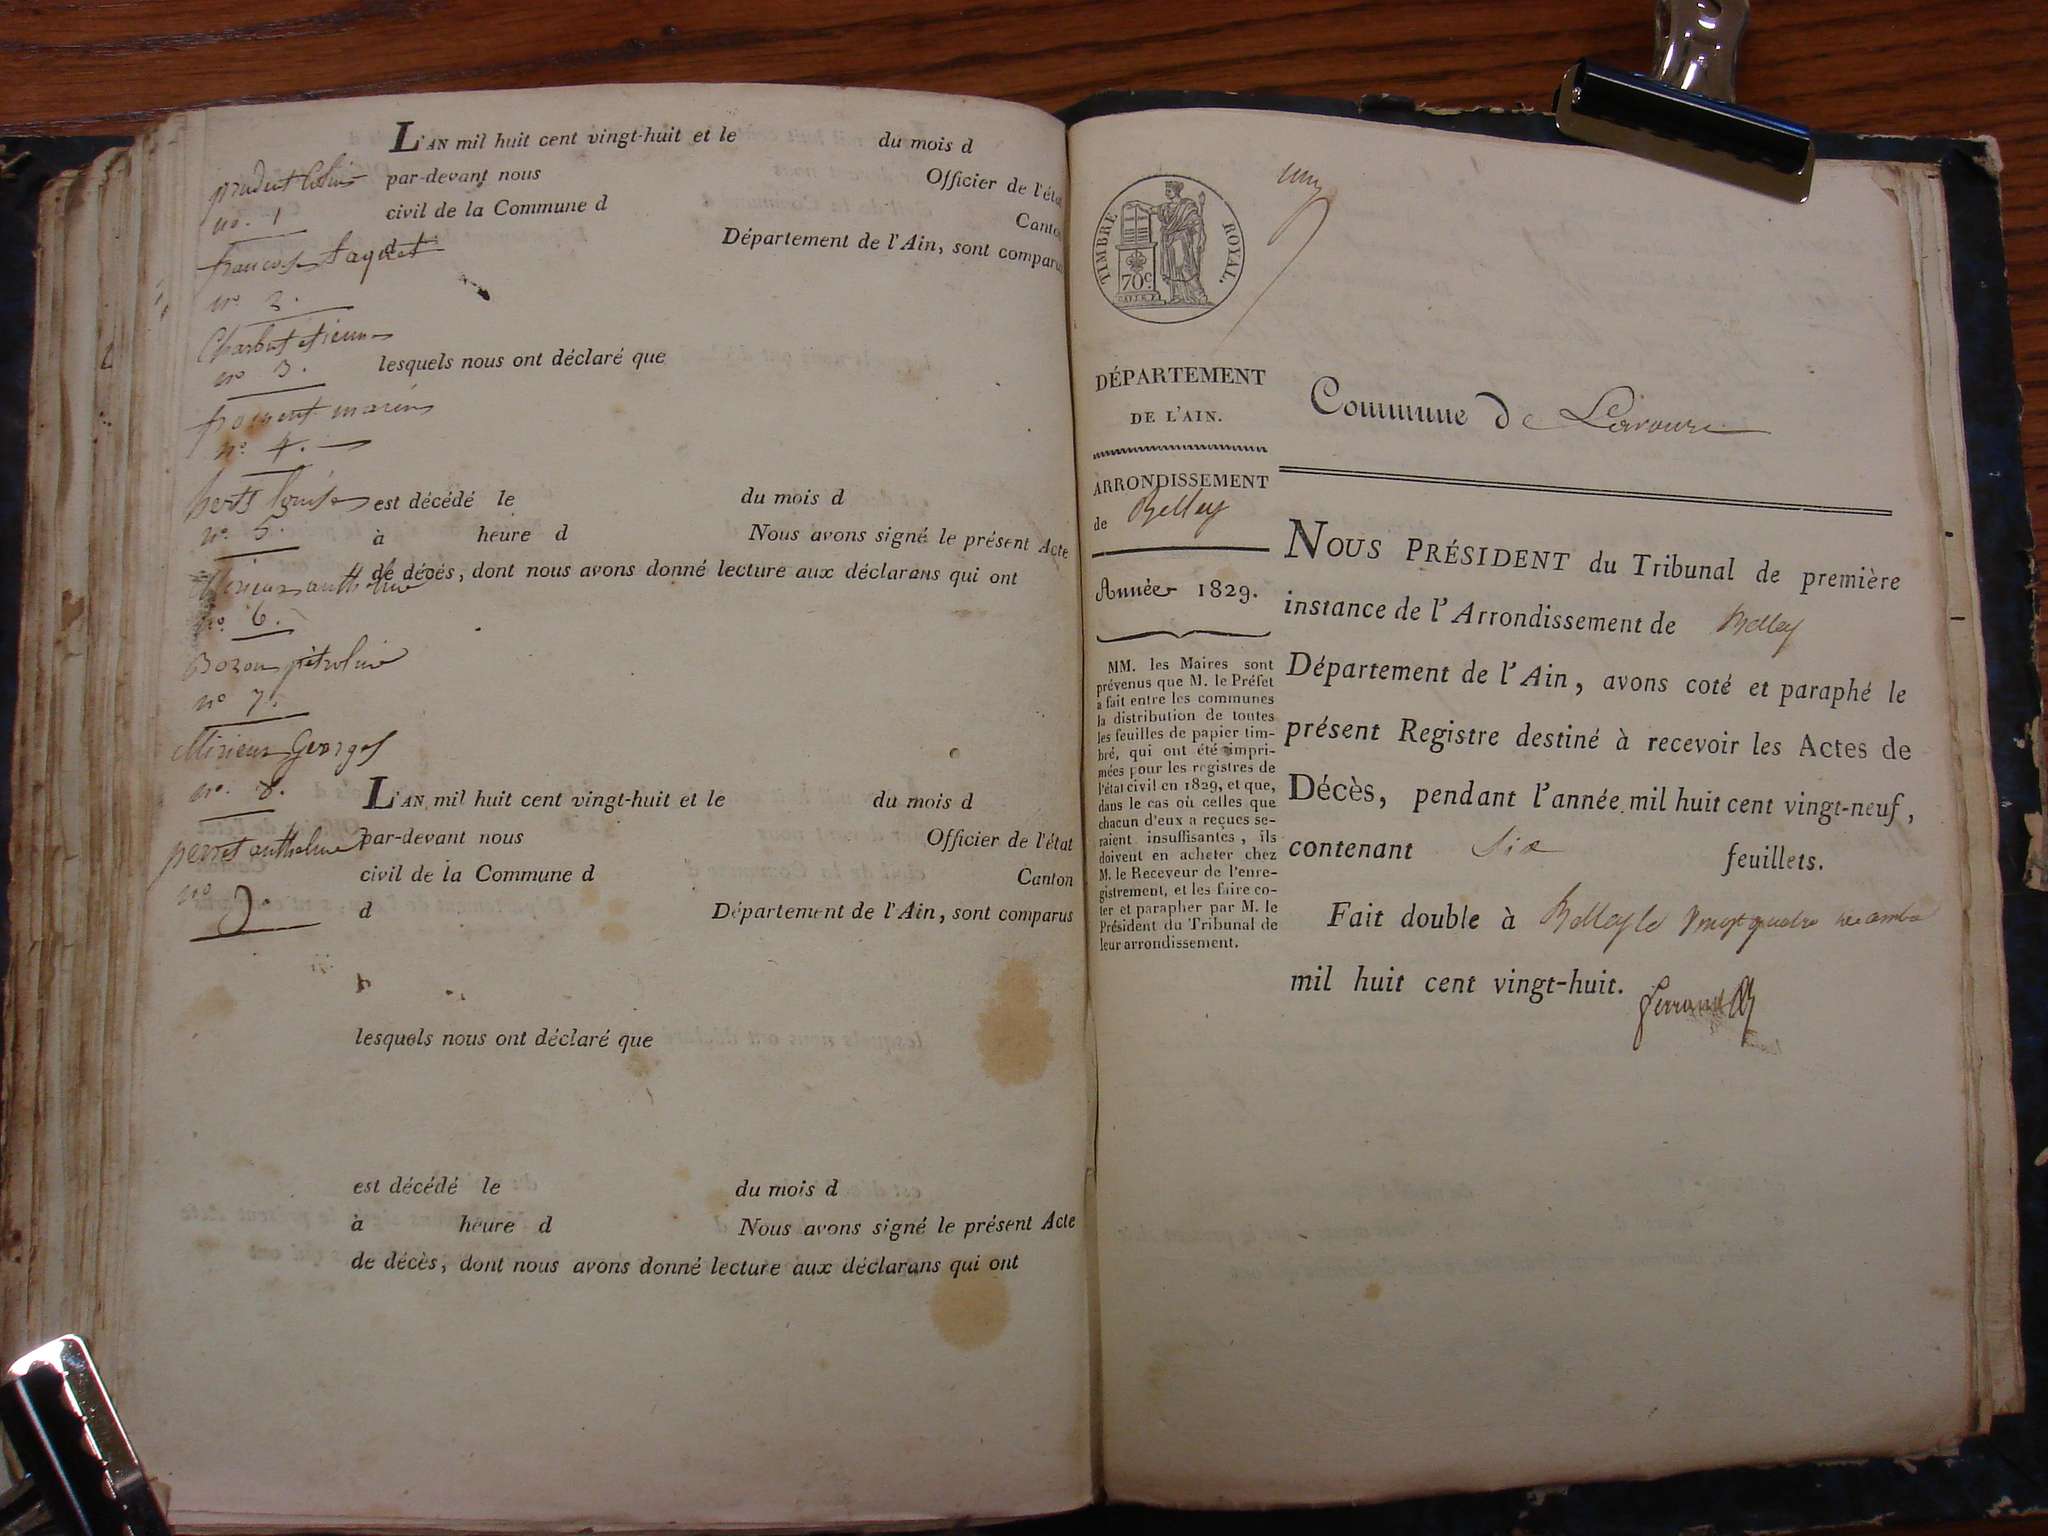 L'AN mil huit cent vingt-huit et le du mois d
par-devant nous Officier de l'état
civil de la Commune d Canton
d Département de l'Ain, sont comparus
lesquels nous ont déclaré que
est décédé le du mois d
à heure d Nous avons signé le présent Acte
de décès, dont nous avons donné lecture aux déclarans qui ont
L'AN mil huit cent vingt-huit et le du mois d
par-devant nous Officier de l'état
civil de la Commune d Canton
d Département de l'Ain, sont comparus
lesquels nous ont déclaré que
est décédé le du mois d
à heure d Nous avons signé le présent Acte
de décès, dont nous avons donné lecture aux déclarans qui ont
no. 1
no 2.
no 3.
froment marin
no 4.
no. 5.
no. 6.
Bozon
no 7.
Georges
no. 8.
perret anthelme
no 9.
TIMBRE ROYAL.
70c.
DÉPARTEMENT
DE L'AIN.
ARRONDISSEMENT
de Belley
Année 1829.
MM. les Maires sont
prévenus que M. le Préfet
a fait entre les communes
la distribution de toutes
les feuilles de papier tim-
bré, qui ont été impri-
mées pour les registres de
l'état civil en 1829, et que,
dans le cas où celles que
chacun d'eux a reçues se-
raient insuffisantes, ils
doivent en acheter chez
M. le Receveur de l'enre-
gistrement, et les faire co-
ter et parapher par M. le
Président du Tribunal de
leur arrondissement.
Commune de Lavours
NOUS PRÉSIDENT du Tribunal de première
instance de l'Arrondissement de Belley
Département de l'Ain, avons coté et paraphé le
présent Registre destiné à recevoir les Actes de
Décès, pendant l'année mil huit cent vingt-neuf,
contenant Six feuillets.
Fait double à Belley le vingt quatre decembre
mil huit cent vingt-huit.